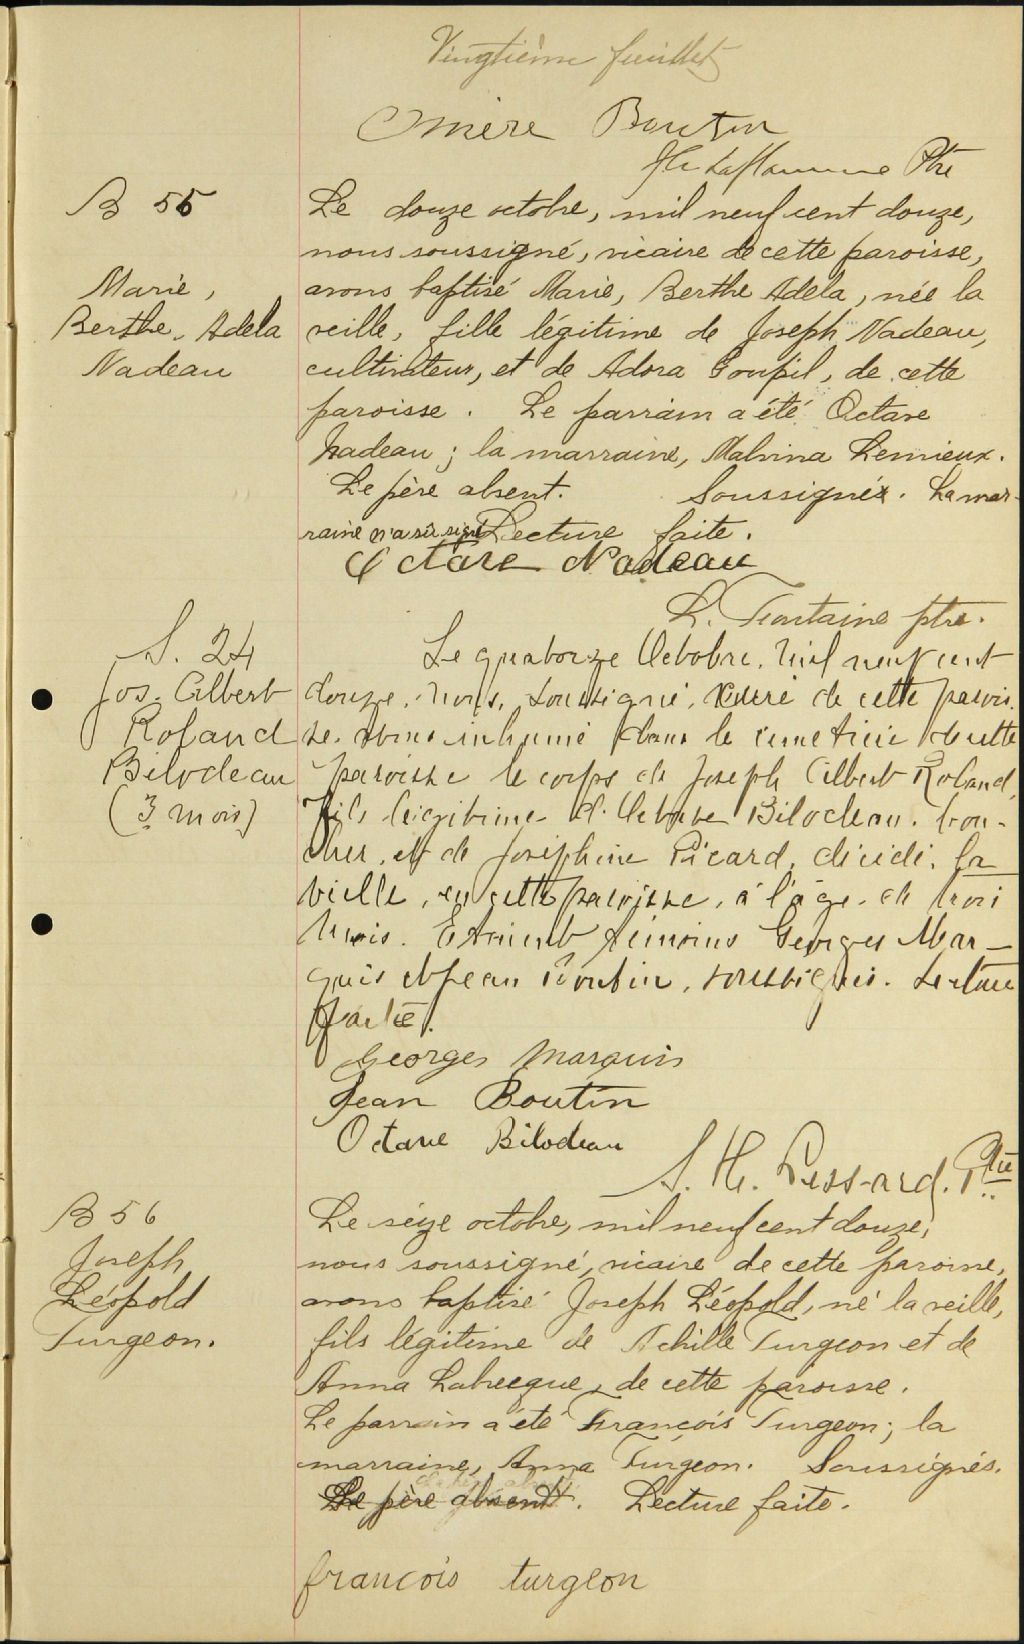 Vingtième feuillet
Omère Boutin
Laflamme Ptre
B 55
Marie,
Berthe, Adela
Nadeau
Le douze octobre, mil neuf cent douze,
nous soussigné, vicaire de cette paroisse,
avons baptisé Marie, Berthe Adela, née la
veille, fille légitime de Joseph Nadeau,
cultivateur, et de Adora Goupil, de cette
paroisse. Le parrain a été Octave
Nadeau; la marraine, Malvina Lemieux.
Le père absent. Soussigné. La mar-
raine n'a su signé Lecture faite.
Octave Nadeau
L. Fontaine ptre.
S. 24
Jos. Albert
Roland
Bilodeau
(3 mois)
Le quatorze Octobre, mil neuf cent
douze, nous, soussigné, curé de cette parois-
se, avons inhumé dans le cimetière de cette
paroisse le corps de Joseph Albert Roland,
fils légitime d'Octave Bilodeau, bou-
cher, et de Joséphine Picard, décédé, la
veille, en cette paroisse, à l'âge de trois
mois. Etaient témoins Georges Mar-
quis et Jean Boutin, soussignés. Lecture
faite.
Georges Marquis
Jean Boutin
Octave Bilodeau
S. H. Lessard. Ptre
B 56
Joseph
Léopold
Turgeon.
Le seize octobre, mil neuf cent douze,
nous soussigné, vicaire de cette paroisse,
avons baptisé Joseph Léopold, né la veille,
fils légitime de Achille Turgeon et de
Anna Labrecque, de cette paroisse.
Le parrain a été François Turgeon; la
marraine, Anna Turgeon. Soussignés.
Le père absent. Lecture faite.
francois turgeon